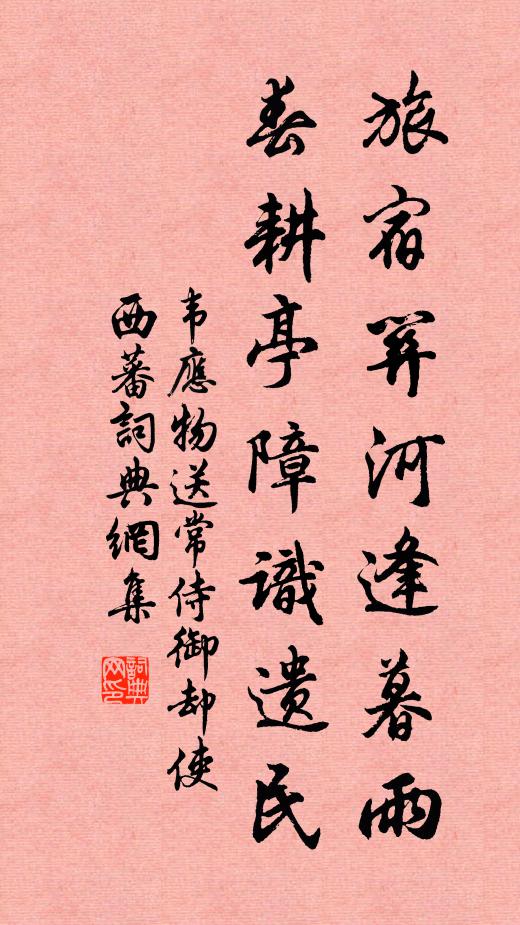 旅宿關河逢暮雨
春耕亭障識遺民
韦應物送常侍御却使
西蕃詞典網集
詞典网印